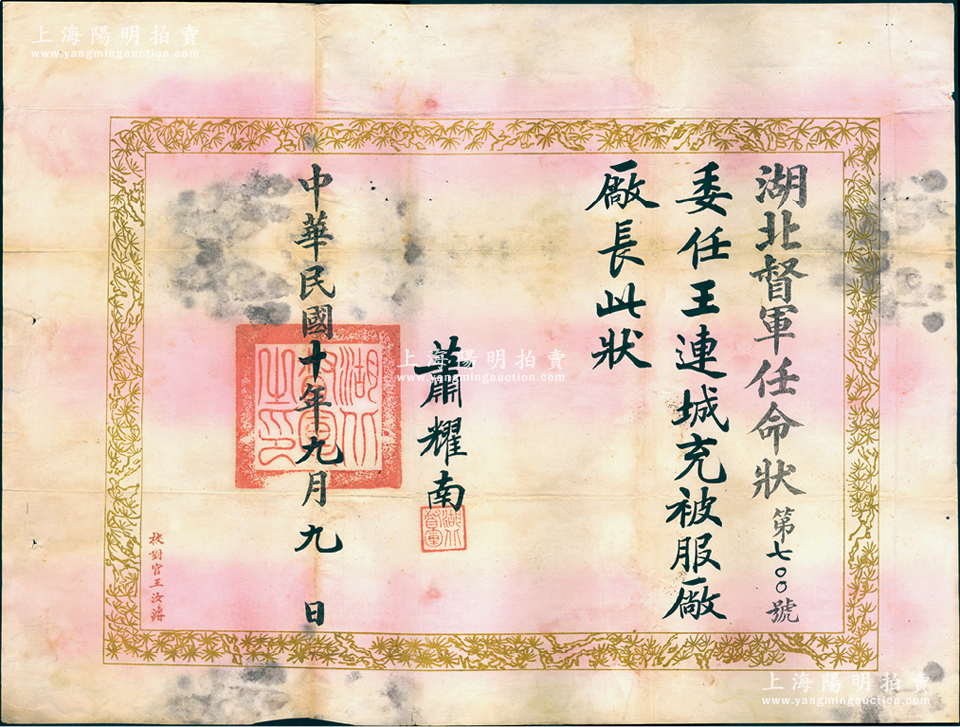 湖北督軍任命狀 第七〇〇號
委任王連城充被服廠
廠長此狀
蕭耀南
湖北督軍
中華民國十年九月九日
湖北督軍之印
校對官王汝
上海陽明拍賣
www.yangmingauction.com
上海陽明拍賣
www.yangmingauction.com
上海陽明拍賣
www.yangmingauction.com